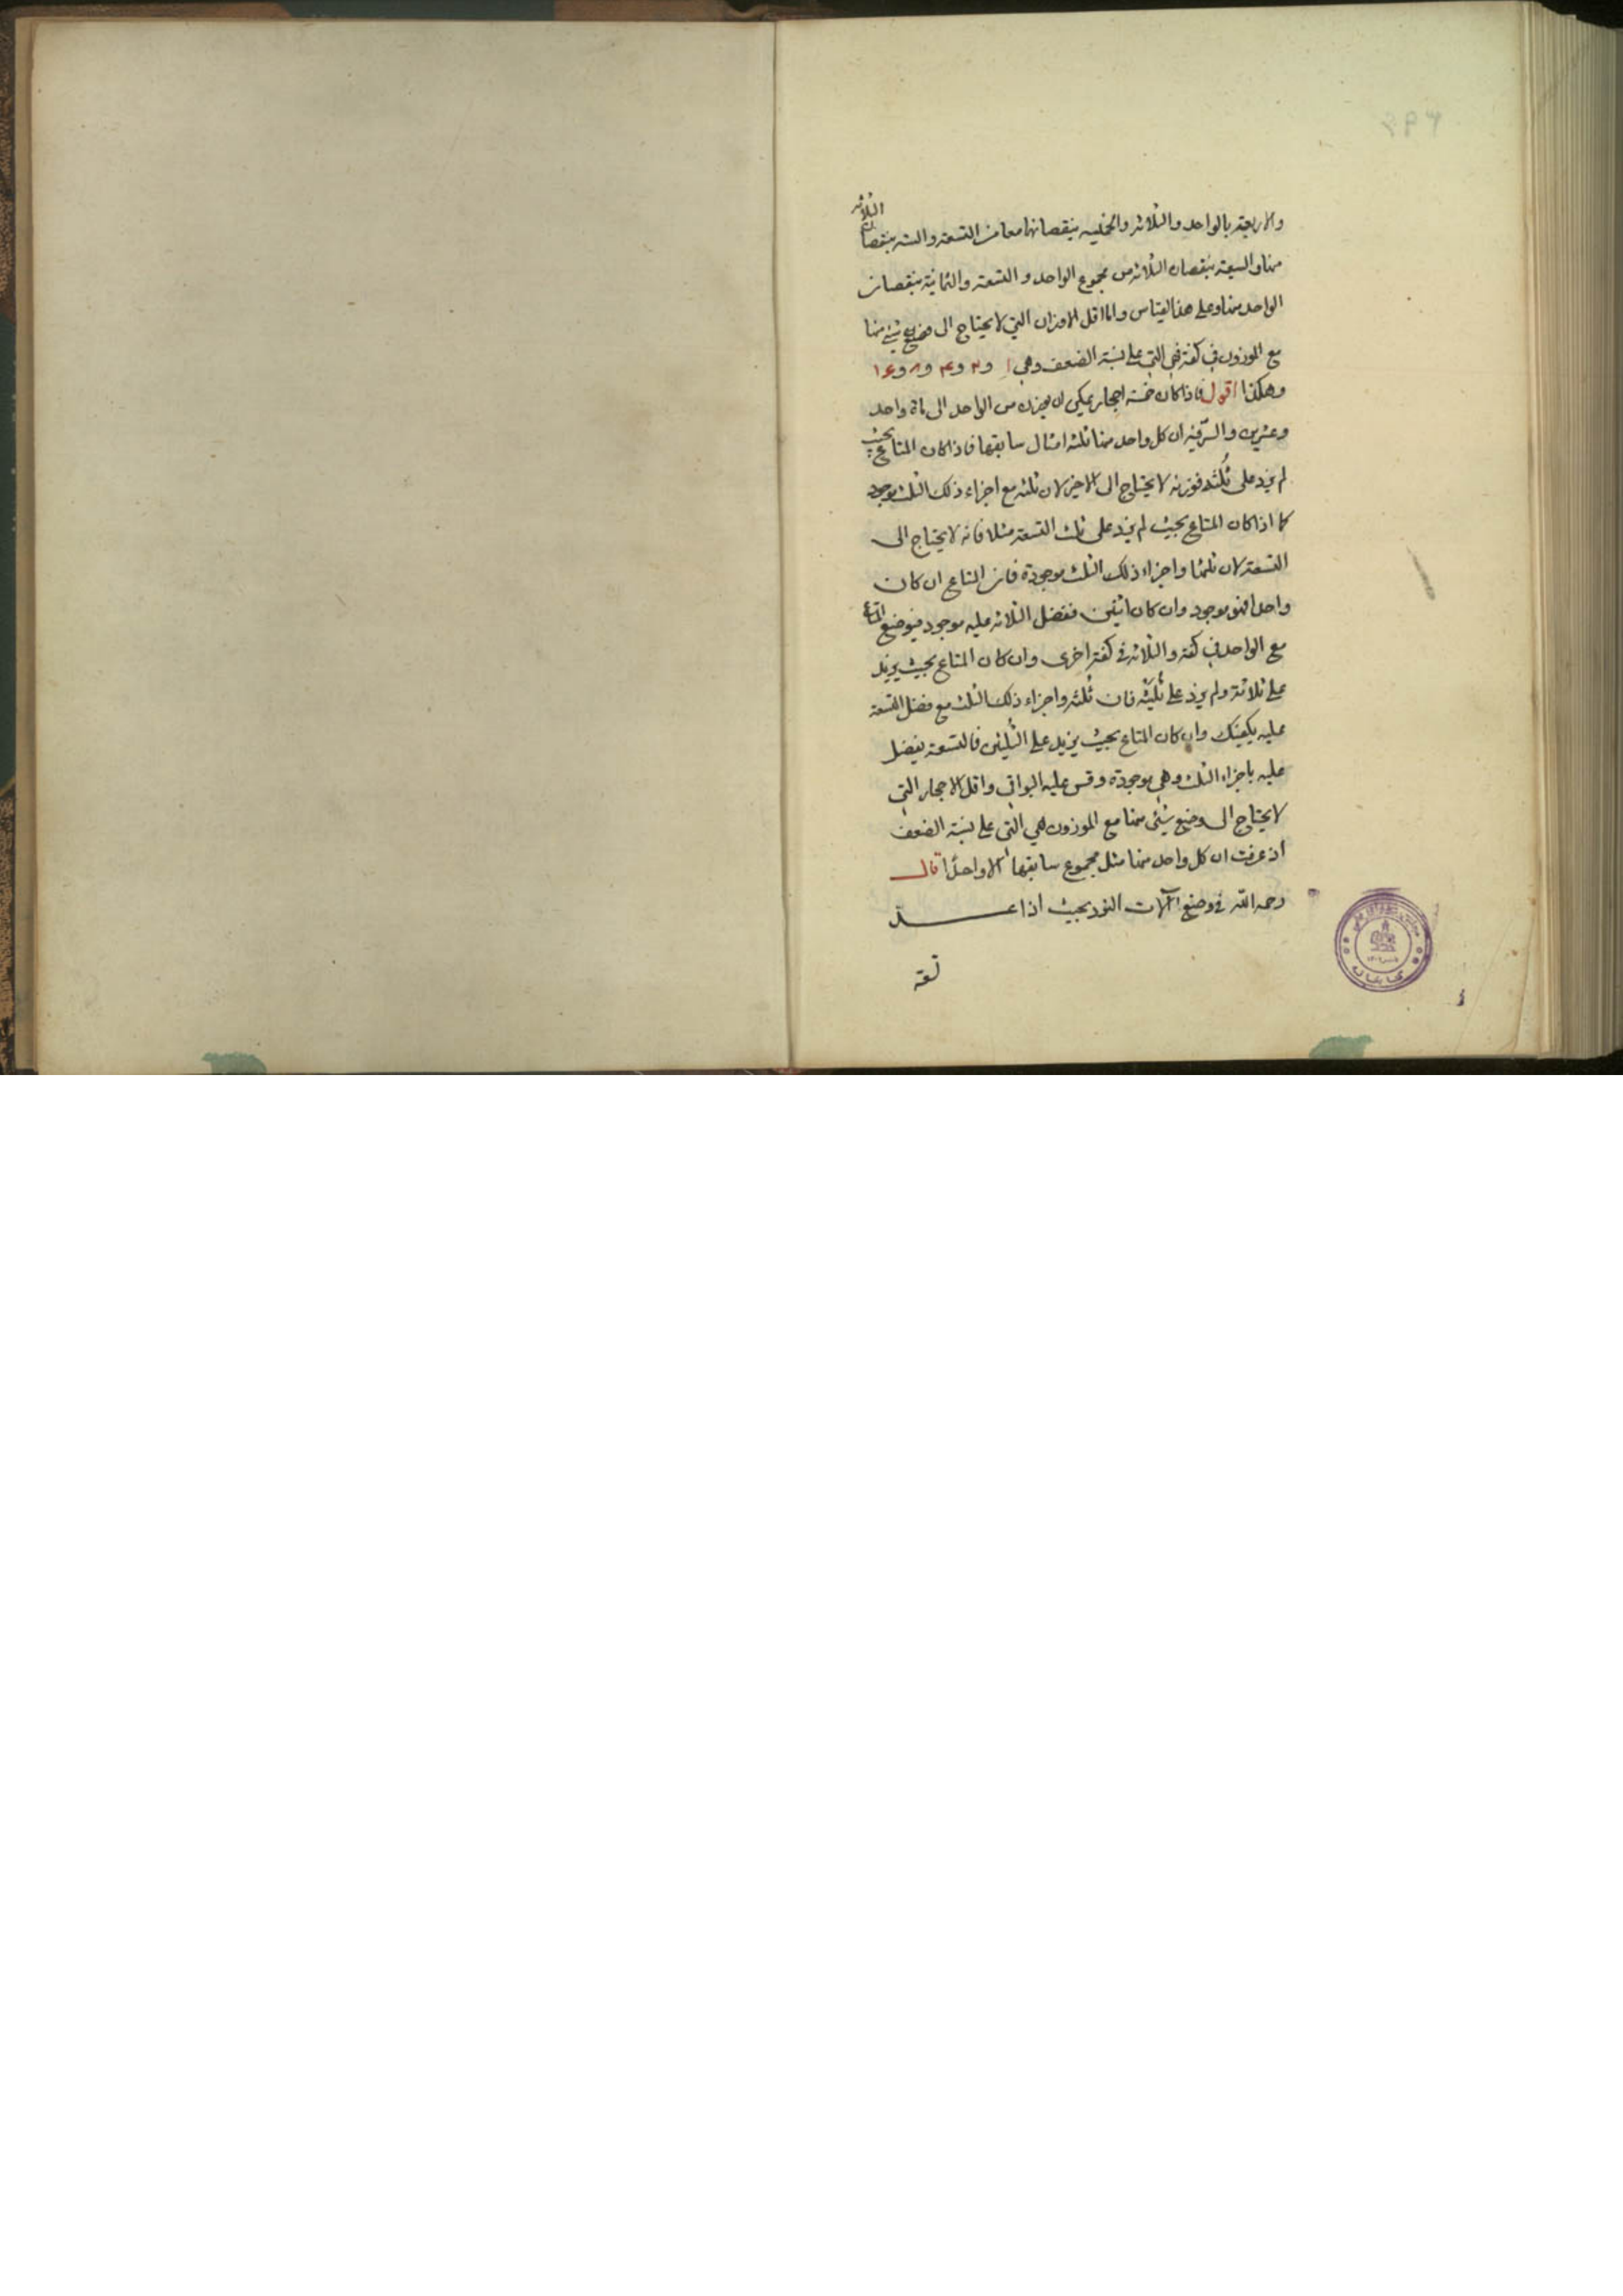 الثلاثه
والاربعة بالواحد والثلاثه والخمسه بنقصانها معا من التسعة والسته بنقصان
منها والسبعة بنقصان الثلاثه من مجموع الواحد و التسعة والثمانية بنقصان
الواحد منها وعلى هذا القياس واما اقل الاوزان التي لا يحتاج الى وضع شئ منها
مع الموزون في كفة فهي التي على نسبة الضعف وهي ا و۲ و۴ و۸ و۱۶
وهكذا اقول فاذا كان خمسة احجار يمكن ان يوزن من الواحد الى مائة واحد
وعشرين والسر فيه ان كل واحد منها ثلثه امثال سابقها فاذا كان المتاع بحيث
لم يزد على ثلثه فوزنه لا يحتاج الى الاخر لان ثلثه مع اجزاء ذلك الثلث موجود
كما اذا كان المتاع بحيث لم يزد على ثلث التسعة مثلا فانه لا يحتاج الى
التسعة لان ثلثها واجزاء ذلك الثلث موجودة فان المتاع ان كان
واحدا فهو موجود وان كان اثنين ففضل الثلاثه عليه موجود فيوضع المتاع
مع الواحد في كفة والثلاثه في كفة اخرى وان كان المتاع بحيث يزيد
على ثلاثة ولم يزد على ثلثيه فان ثلثه واجزاء ذلك الثلث مع فضل التسعة
عليه يكفيك وان كان المتاع بحيث يزيد على الثلثين فالتسعة يفضل
عليه باجزاء الثلث وهي موجودة وقس عليه البواقي واقل الاحجار التي
لا يحتاج الى وضع شئ منها مع الموزون هي التي على نسبة الضعف
اذ عرفت ان كل واحد منها مثل مجموع سابقها الا واحدًا قال
رحمه الله في وضع آلات النرد بحيث اذا عد
تسعة